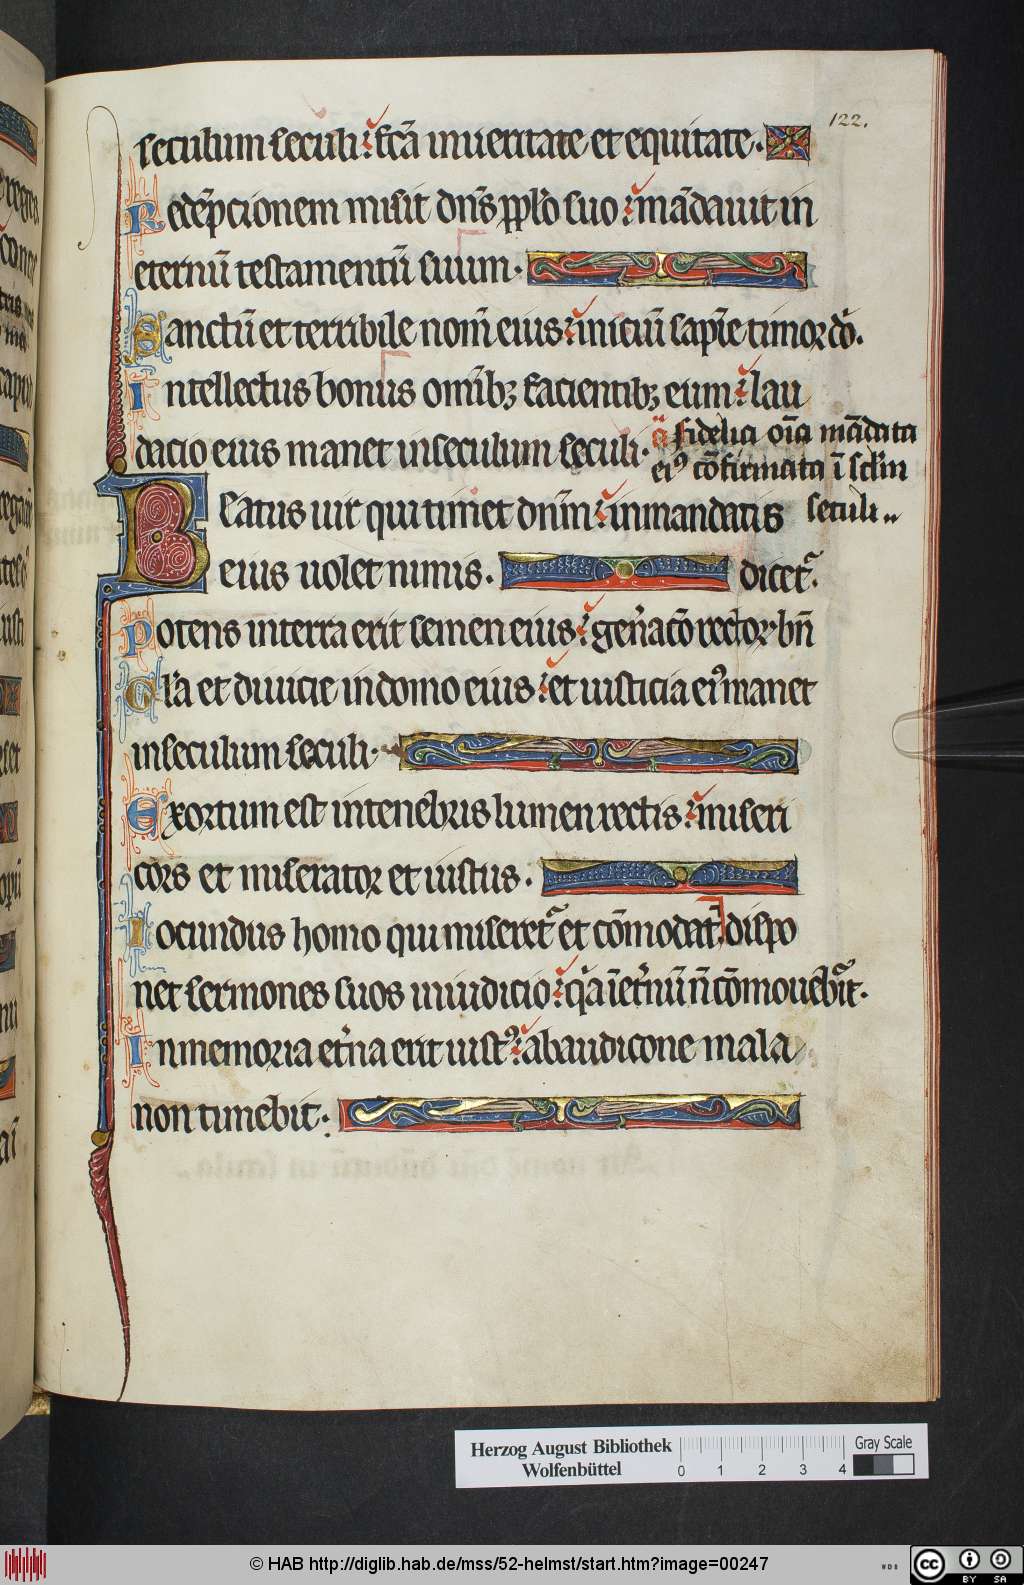 122.
seculum seculi : fcā in ueritate et equitate.
Redēpcionem misit dn̄s pplo suo : mādauit in
eternū testamentū suum.
Sanctū et terribile nom̄ eius : iniciū sapīe timor dī.
Intellectus bonus om̄ibꝫ facientibꝫ eum : lau
dacio eius manet in seculum seculi.
ā fidelia oīa mādata
eiꝰ cōfirmata ī sclm
seculi
Beatus uir qui timet dn̄m : in mandatis
eius uolet nimis. dicet᷑.
Potens in terra erit semen eius : gen̄atō rectoꝝ bn̄
Gl̄a et diuicie in domo eius : et iusticia eiꝰ manet
in seculum seculi.
Exortum est in tenebris lumen rectis : miseri
cors et miserator et iustus.
Iocundus homo qui miseret᷑ et cōmodat : dispo
net sermones suos in iudicio : q̄a ī et̄nū n̄ cōmouebit᷑.
In memoria et̄na erit iustꝰ : ab audicōne mala
non timebit.
Herzog August Bibliothek
Wolfenbüttel
0 1 2 3 4
Gray Scale
© HAB http://diglib.hab.de/mss/52-helmst/start.htm?image=00247
WDB
CC BY SA